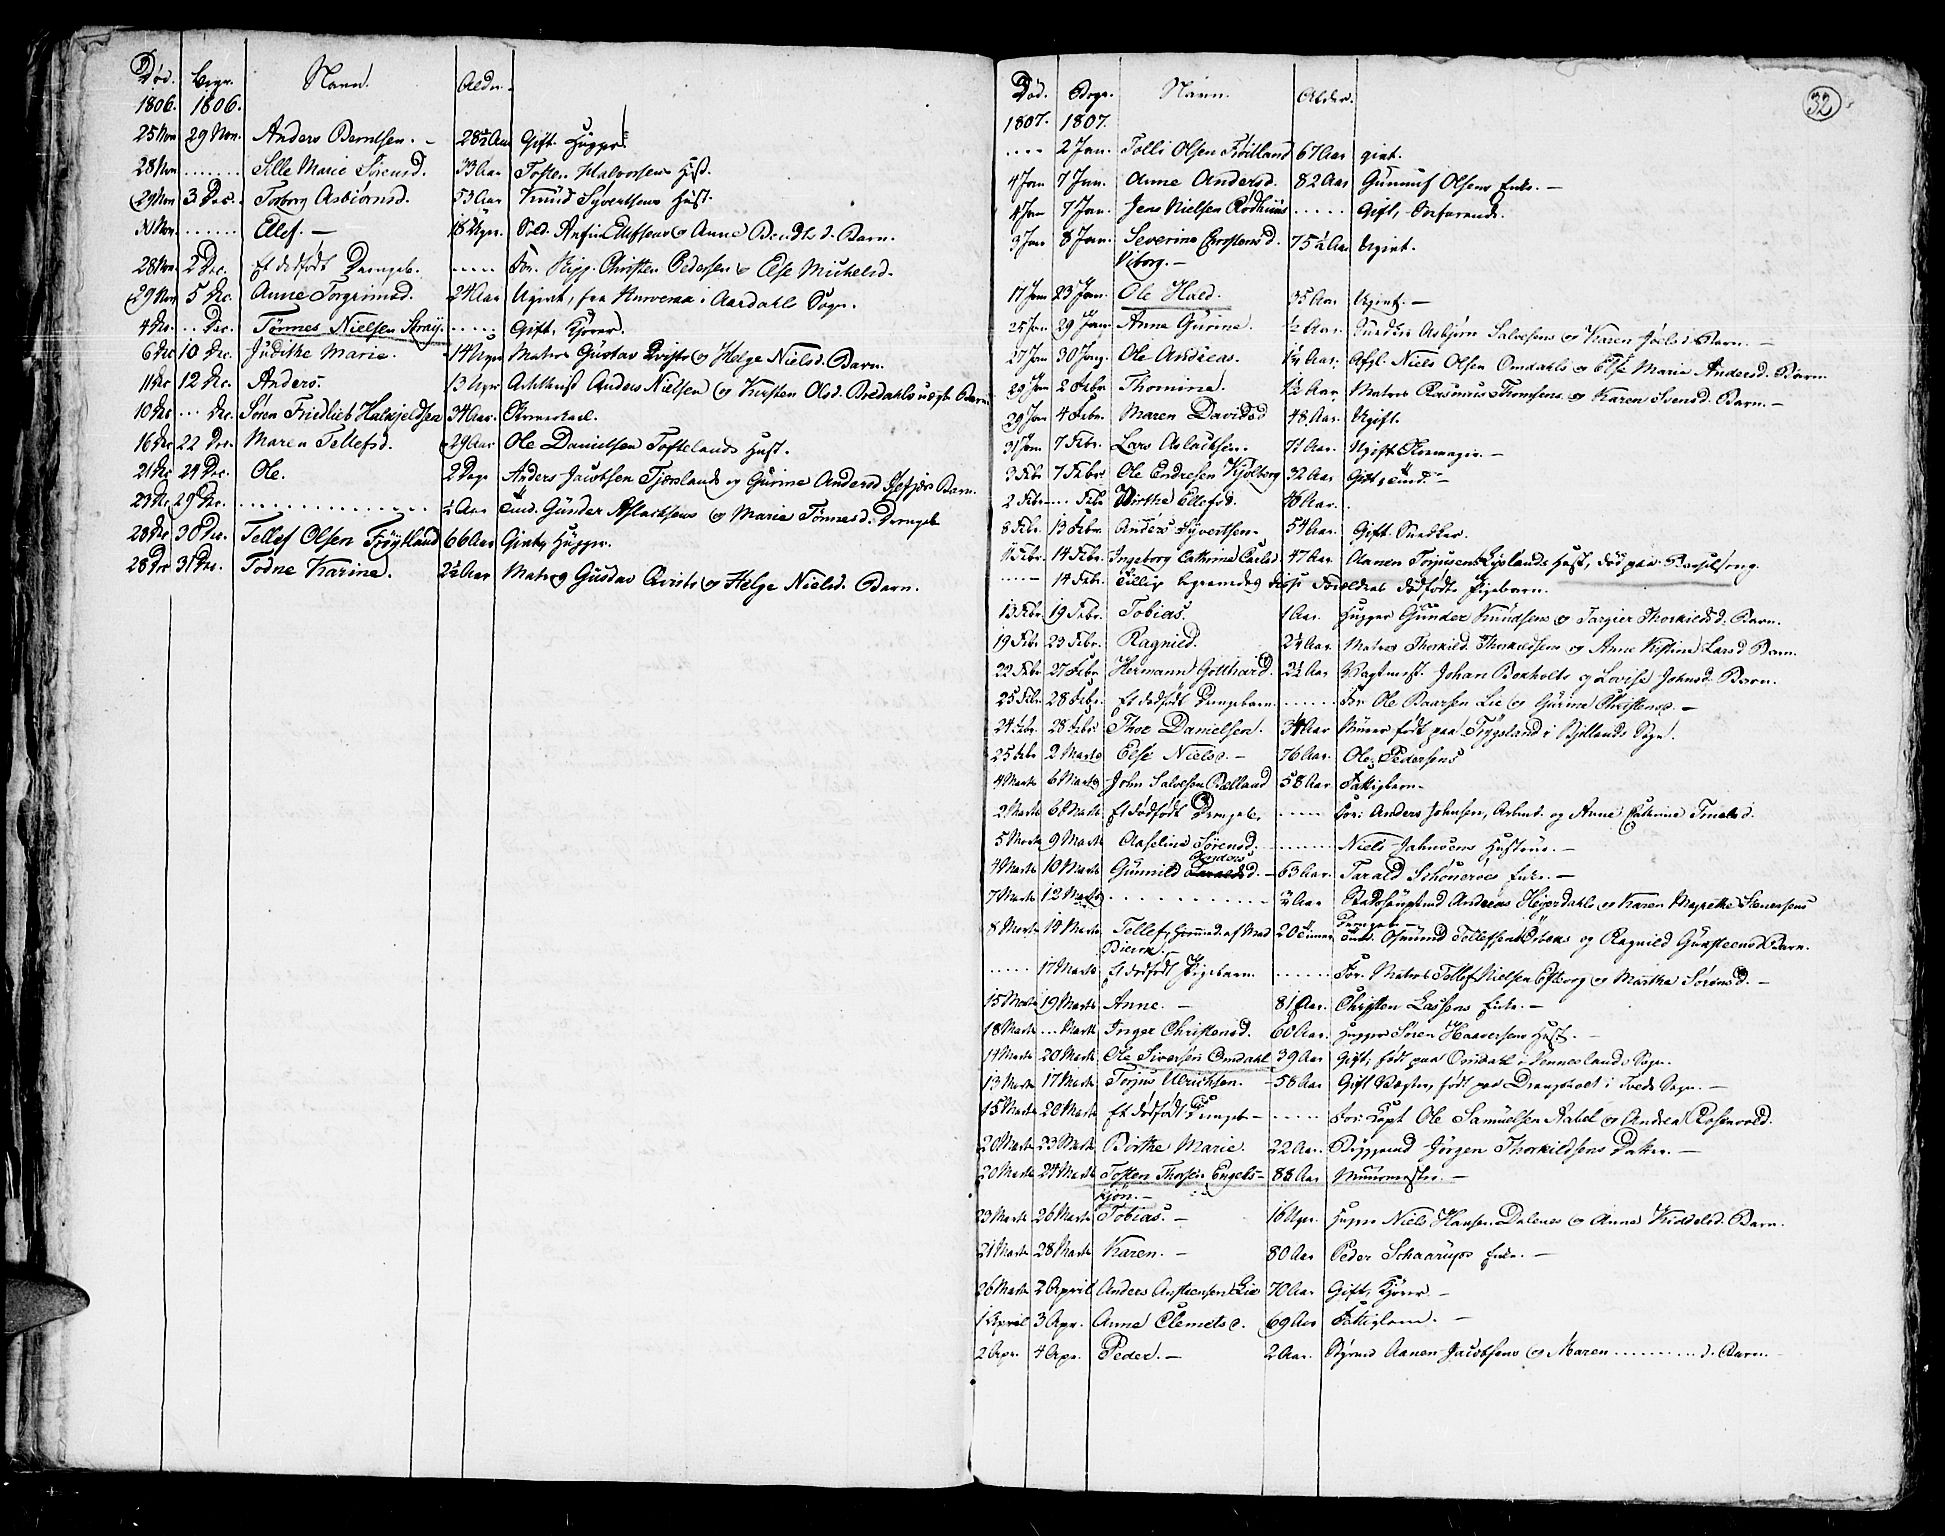 Død. Begr. Navn. Alder.
1806. 1806.
25 Nov 29 Nov. Anders Berntsen. — 28½ Aar Gift. Hugger.
28 Nov ...... Sille Marie Sørensd. 33 Aar Tosten Halvorsens Hust.
29 Nov 3 Dec. Torborg Asbiørnsd. 53 Aar Knud Syvertsens Hust.
Nov. ...... Ellef. — 18 Uger. Sold. Ellefsens og Anne Bendtsd. Barn.
28 Nov. 2 Dec. Et dødfødt Drengeb. ..... For. Christen Pedersen og Else Michelsd.
29 Nov 5 Dec. Anne Torgrimsd. 24 Aar Ugivt, fra i Aardahls Sogn.
4 Dec. ... Dec. Tønnes Nielsen Stray. ..... Gift, Kjører.
6 Dec 10 Dec. Judithe Marie. 14 Uger Matros Gustav Qvists og Helge Nielsd. Barn.
11 Dec 12 Dec. Anders. 13 Uger Anders Nielsen og Kirsten Olsd. Bredahls uægte Barn.
10 Dec ... Dec. Søren Friedlieb Halkjeldsen 34 Aar.
16 Dec 22 Dec. Maren Tellefsd. 29 Aar Ole Danielsen Toftelands Hust.
21 Dec 24 Dec. Ole. 2 Dage Anders Jacobsen Tjorslands og Gurine Andersd. Barn.
23 Dec 29 Dec. .............. ½ Aar Gunder Aslachsens og Marie Tønnesd. Drengeb.
28 Dec 30 Dec. Tellef Olsen Frøytland 66 Aar Givt, Hugger.
28 Dec 31 Dec. Todne Karine. 2½ Aar Matros Gustav Qvists og Helge Nielsd. Barn.
32
Død. Begr. Navn. Alder.
1807. 1807.
.... 2 Jan. Tolli Olsen Frøitland 67 Aar givt.
4 Jan 7 Jan. Anne Andersd. 82 Aar Gunnuf Olsens Enke. —
4 Jan 7 Jan. Jens Nielsen Rødhuus ..... Gift,
3 Jan 8 Jan. Severine Christensd. 75½ Aar Ugivt.
Viborg. —
17 Jan 23 Jan. Ole Hald. 35 Aar. Ugivt. —
25 Jan 29 Jan. Anne Gurine. ½ Aar. Snedker Asbjørn Salvesens og Karen Joelsd. Barn. —
27 Jan 30 Jan. Ole Andreas. Niels Olsen Omdahls og Else Marie Andersd. Barn
29 Jan 2 Febr. Thomine. 1½ Aar Matros Rasmus Thomsens og Karen Svensd. Barn. —
29 Jan 4 Febr. Maren Davidsd 48 Aar. Ugift.
31 Jan 7 Febr. Lars Aslachsen. Aar. Ugift
3 Febr 7 Febr. Ole Endresen Kjolberg 32 Aar Gift,
2 Febr .... Febr Birthe Ellefsd. Aar.
8 Febr. 13 Febr. Anders Syvertsen. 54 Aar Gift. Snedker.
Febr. 14 Febr. Ingeborg Cathrine Carlsd 47 Aar. Aanen Torjusens Lislands Hust, død paa Barselseng.
..... 14 Febr. Tillige begravedes disse Forældres dødfødte Pigebarn.
13 Febr. 19 Febr. Tobias. 1 Aar. Hugger Gunder Knudsens og Targier Thorkildsd. Barn.
19 Febr. 23 Febr. Ragnild. 2½ Aar. Matros Thorkild Thorkildsens og Anne Kistine Larsd. Barn.
22 Febr 27 Febr Hermann Gotthard. 2½ Aar Vagtmest. Johan Boxholts og Lovise Johnsd. Barn.
25 Febr. 28 Febr. Et dødfødt Drengebarn ...... For. Ole Baarsen Lie og Gurine Christensd. —
24 Febr. 28 Febr. Thor Danielsen. 34 Aar Murer født paa Trygsland i Bjellands Sogn.
25 Febr 2 Marts Else Nielsd. — 76 Aar Ole Pedersens
4 Marts 6 Marts John Salvesen Bælland 58 Aar Fattiglem.
2 Marts 6 Marts Et dødfødt Drengeb. ..... For: Anders Johnsen, Arbmd. og Anne Cathrine
5 Marts 9 Marts Aaseline Sørensd. ....... Niels Jahnsens Hustrue. —
4 Marts 10 Marts Gunnild Anders d. — 63 Aar. Tarald Schøuerøes Enke. —
7 Marts 12 Marts ............ ½ Aar Andreas Heyerdahls og Karen Magrethe Steensens Drengeb.
8 Marts 14 Marts Tellef, Hiemmed. af Mad Bierm. 20 Timer Osmund Tellefsens og Ragnild Gunsteensd. Barn.
..... 17 Marts Et dødfødt Pigebarn. ...... For. Matros Tellef Nielsen Esborg og Marthe Sørensd. —
15 Marts 19 Marts Anne. — 81 Aar. Christen Lassens Enke. —
18 Marts ... Marts Inger Christensd. 60 Aar. Hugger Søren Haaversens Hust. —
14 Marts 20 Marts Ole Siversen Omdahl. 39 Aar Gift, født paa Omdahl i Venneslands Sogn.
13 Marts 17 Marts Torjus Ulrichsen. — 58 Aar Gift født paa Drangsholt i Tveds Sogn. —
15 Marts 20 Marts Et dødfødt Drengeb. — ..... For: Capt Ole Samuelsen Aabel og Andrea Rosenvold.
20 Marts 23 Marts Birthe Marie. 22 Aar. Byggmd. Jørgen Thorkildsens Datter. —
20 Marts 24 Marts Tosten Thorsen Engels- — 88 Aar Muurmester. —
kjøn. —
23 Marts 26 Marts Tobias. — 16 Uger. Hugger Niels Hansen Dalenes og Anne Kiddelsd. Barn.
21 Marts 28 Marts Karen. — 80 Aar Peder Schaarups Enke. —
26 Marts 2 April Anders Austeensen Lie 70 Aar Gift, Kjører. —
1 April 3 Apr. Anne Clemetsd. 69 Aar Fattiglem. —
2 Apr. 4 Apr. Peder. — 2 Aar. Aanen Jacobsens og Maren ......... d. Barn.